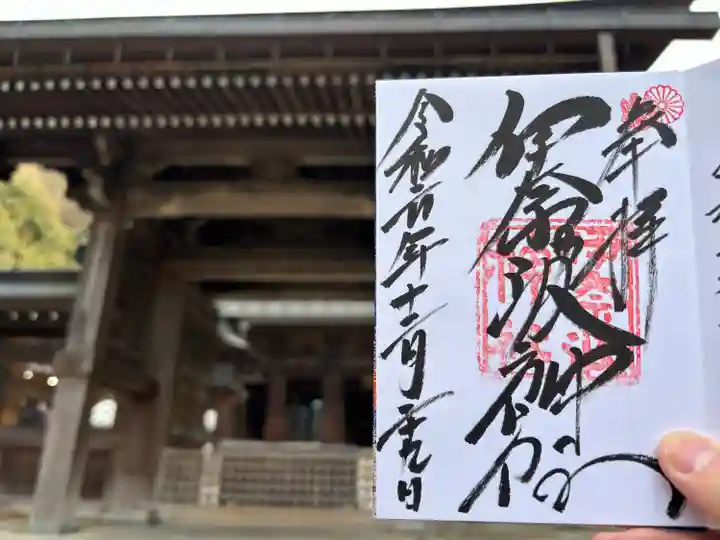 奉拝
伊奈波神社
令和六年十二月二十九日